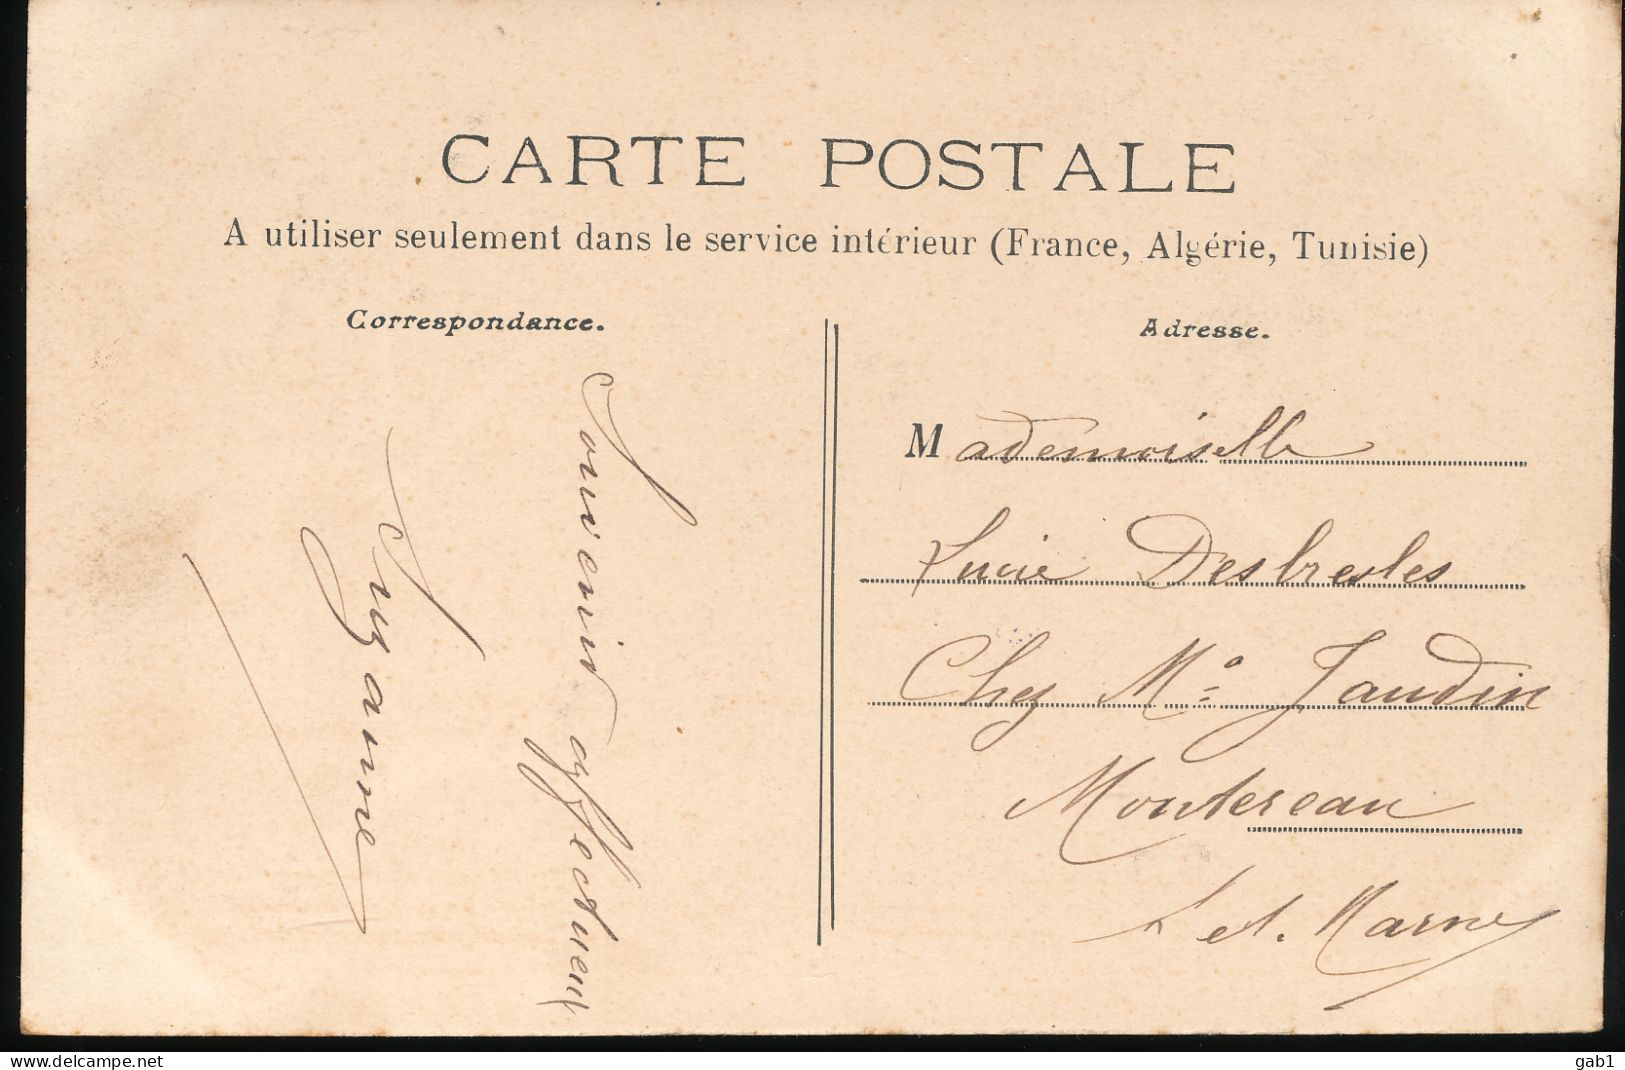 CARTE POSTALE
A utiliser seulement dans le service intérieur (France, Algérie, Tunisie)
Correspondance.
Souvenir affectueux
Suzanne
Adresse.
Mademoiselle
Lucie Desbresles
Chez Mº Jaudin
Montereau
S et. Marne
www.delcampe.net
gab1